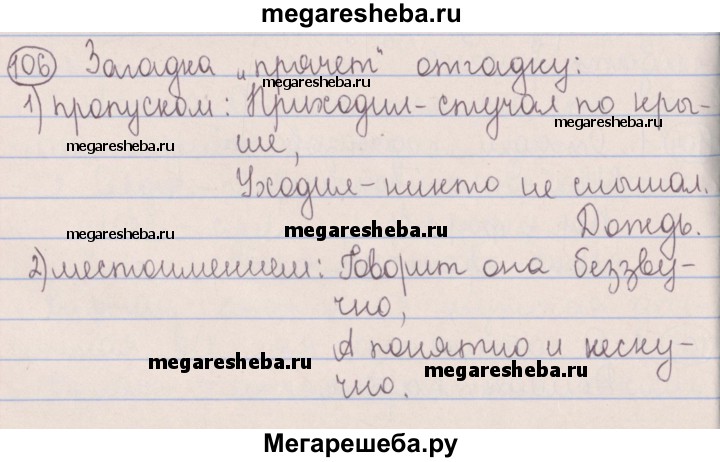 megaresheba.ru
106 Загадка „прячет“ отгадку:
1) пропуском: Приходил - стучал по кры-
megaresheba.ru
megaresheba.ru
ше,
Уходил - никто не слышал.
megaresheba.ru
megaresheba.ru
Дождь.
2) местоимением: Говорит она беззву-
чно,
А понятно и неску-
megaresheba.ru
megaresheba.ru
чно.
Мегарешеба.ру